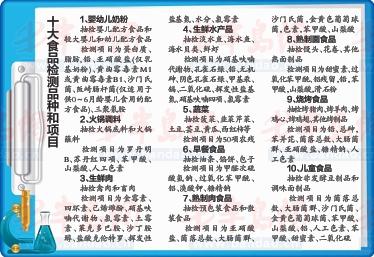 十大食品检测品种和项目
1.婴幼儿奶粉
抽检婴儿配方食品和
较大婴儿和幼儿配方食品
检测项目为蛋白质、
脂肪、铅、亚硝酸盐(仅乳
基奶粉)、黄曲霉毒素M1
或黄曲霉毒素B1、沙门氏
菌、阪崎肠杆菌(仅适用于
供0~6月龄婴儿食用的配
方食品)、三聚氰胺
2.火锅调料
抽检火锅底料和火锅
蘸料
检测项目为罗丹明
B、苏丹红四项、苯甲酸、
山梨酸、人工色素
3.生鲜肉
抽检禽肉和畜肉
检测项目为金霉素、
四环素、己烯雌酚、硝基呋
喃代谢物、氯霉素、土霉
素、莱克多巴胺、沙丁胺
醇、盐酸克伦特罗、挥发性
盐基氮、水分、氯霉素
4.生鲜水产品
抽检淡水鱼、海水鱼、
海水贝类、鲜虾
检测项目为硝基呋喃
代谢物、孔雀石绿、铅、无机
砷、隐色孔雀石绿、甲醛、
镉、二氧化硫、挥发性盐基
氮、硝基呋喃四项、氯霉素
5.蔬菜
抽检菠菜、韭菜芹菜、
土豆、茶豆、黄瓜、西红柿等
检测项目为50项农残
6.早餐食品
抽检油条、馅饼、包子
检测项目为甲醛次硫
酸氢钠、过氧化苯甲酰、
铅、溴酸钾、糖精钠
7.熟制肉食品
抽检预包装食品和散
装食品
检测项目为亚硝酸
盐、菌落总数、大肠菌群、
沙门氏菌、金黄色葡萄球
菌、色素、苯甲酸、山梨酸
8.熟制面食品
抽检馒头、花卷、其他
蒸制面食品
检测项目为甜蜜素、过
氧化苯甲酰、铝残留、铅、苯
甲酸、山梨酸、滑石粉
9.烧烤食品
抽检烤猪肉、烤羊肉、烤
鸡心、烤培根、其他烤制品
检测项目为铅、总砷、
苯并芘、菌落总数、大肠菌
群、亚硝酸盐、糖精钠、人
工色素
10.儿童食品
抽检非发酵豆制品和
调味面制品
检测项目为菌落总
数、大肠菌群、沙门氏菌、
金黄色葡萄球菌、苯甲酸、
山梨酸、铅、人工色素、苯
甲酸、甜蜜素、二氧化硫